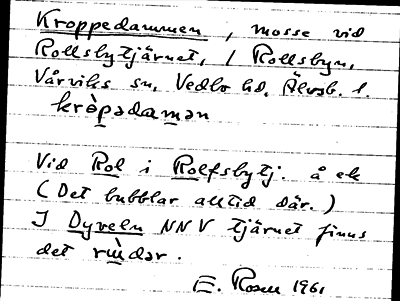 Kroppedammen, mosse vid
Rollsbytjärnet, / Rollsbyn,
Vårviks sn, Vedbo hd, Älvsb. l.
krɵ̀pədamən
Vid Rol i Rolfsbytj. å ek
(Det bubblar alltid där.)
I Dyveln NNV tjärnet finns
det rìndər.
E. Rosen 1961